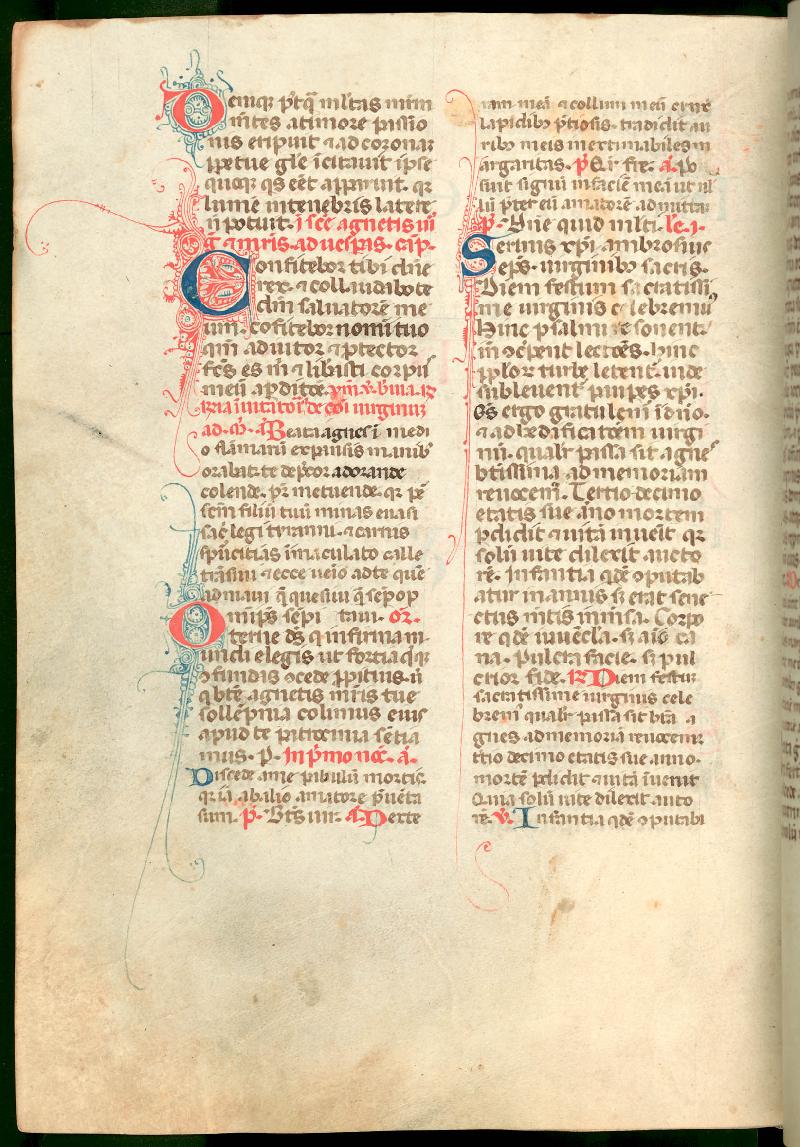 Demuȝ ptqȝ mltas mim
mtes a timore passio
nis eripuit ⁊ ad coronaȝ
ppetue gle icitauit ipse
quoqȝ qs eet apparuit. qȝ
lume in tenebris latere
n potuit. I sce agnetis uiȝ
g ⁊ mris. ad uespas. cap.
Confitebor tibi dne
rex. ⁊ collaudabo te
dm saluatore me
um. cofitebor nomi tuo
qm adiutor ⁊ ptector
fcs es m ⁊ libasti corpus
meu a pditoe.
ria inuitator de coi uirginuȝ
ad. a. Beata agnes i medi
o flamaru expansis manibȝ
orabat. te depcor adorande
colende. pr metuende. qȝ pe
scm filiu tuu minas euasi
sac legi tyranni. ⁊ carnis
spucitias imaculato calle
transiui ⁊ ecce uenio ad te que
admaui que quesiui que sep op
Omips sepi tam. or.
terne ds q infirma m
undi elegis ut fortia qqȝ
ɔfundas ɔcede ppitius. ut
q bte agnetis mris tue
sollepnia colimus eius
apud te patrocinia sentia
mus. P. In pmo noc. a.
Discede a me pabulu mortis.
qȝ ia ab alio amatore puenta
sum. P. Bts uir. a. Dexte
ram mea ⁊ collum meu cinxit
lapidibȝ ptiosis. tradidit au
ribȝ meis inextimabiles m
argaritas. P. Qr fre. a. Po
suit signu in facie mea ut ul
lu pter eu amatore admitta
P. Dne quid mlti. le. i.
Seruus xpi ambrosius
eps. uirginibȝ sacris.
Diem festum sacratissi
me uirginis celebremus
Hinc psalmi resonent
in ɔcrepent lectoes. hinc
pploȝ turbe letent. inde
subleuent paupes xpi.
Os ergo gratulem i dno.
⁊ ad hedificatoem uirgi
nu. qualr passa sit agnes
btissima ad memoriam
reuocem. Tertio decimo
etatis sue ano mortem
pdidit ⁊ uita inueit qȝ
solu uite dilexit aucto
re. Infantia qde ɔputab
atur in annis sȝ erat sene
ctus mtis inmsa. Corpo
re qde iuuecla. sȝ aio ca
na. Pulcra facie. sȝ pul
crior fide. R. Diem festum
sacratissime uirginis cele
brem qualr passa sit bta a
gnes ad memoria reuocem
ttio decimo etatis sue anno.
morte pdidit ⁊ uita inuenit
Quia solu uite dilexit aucto
re. V. Infantia qde ɔputabȝ